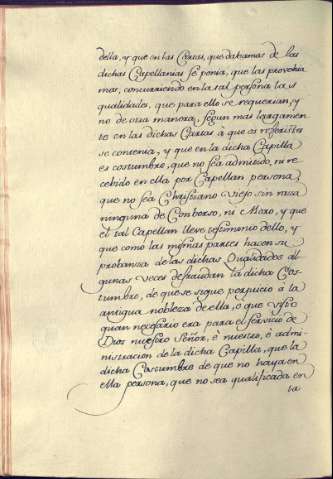 della, y que en las Cartas, que dabamos de las
dichas Capellanias se ponia, que las provehia
mos, concurriendo en la tal persona las
qualidades, que para ello se requerian, y
no de otra manera, segun mas largamen
te en las dichas Cartas à que os referista
se contenia, y que en la dicha Capilla
es costumbre, que no sea admitido, ni re
cebido en ella por Capellan persona
que no sea Christiano Viejo sin raza
ninguna de Converso, ni Moro, y que
el tal Capellan lleve testimonio dello, y
que como las mismas partes hacen su
probanza de las dichas Qualidades al
gunas veces defraudan la dicha Cos-
tumbre, de que se sigue perjuicio à la
antigua nobleza de ella, è que visto
quan necesario era para el servicio de
Dios nuestro Señor, è nuestro, è admi-
nistracion de la dicha Capilla, que la
dicha Costumbre de que no haya en
ella persona, que no sea qualificada en
la